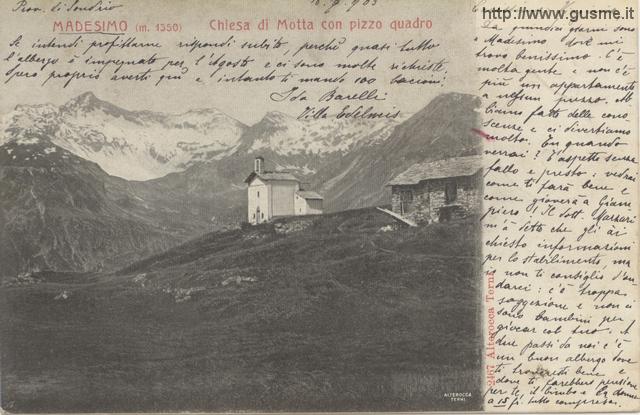 http://www.gusme.it
Prov. di Sondrio
MADESIMO (m. 1550) Chiesa di Motta con pizzo quadro
Se intendi profittarne rispondi subito, perchè quasi tutto
l'albergo è impegnato per l'Agosto e ci sono molte richieste;
Spero proprio averti qui e intanto ti mando 100 bacioni;
Ida Barelli
Villa Adelmis
giorni sono
a Madesimo dove mi
trovo benissimo. C'è
molta gente e non c'è
più un appartamento
a nessun prezzo. Ab
biamo fatto delle cono
scenze e ci divertiamo
molto. Tu quando
verrai? T'aspetto senza
fallo e presto: vedrai
come ti farà bene e
come gioverà a Giam
piero! Il Dott.
m'à detto che gli ài
chiesto informazioni
per lo stabilimento, ma
io non ti consiglio d'an
darci: c'è troppa
soggezione e non ci
sono bambini per
giocar col tuo. A
due passi da noi c'è
un buon albergo dove
ti troveresti bene e
dove ti farebbero pensione
per te, il bimbo e la donna
a 15 fr. tutto compreso.
2467 Alterocca Terni
ALTEROCCA
TERNI